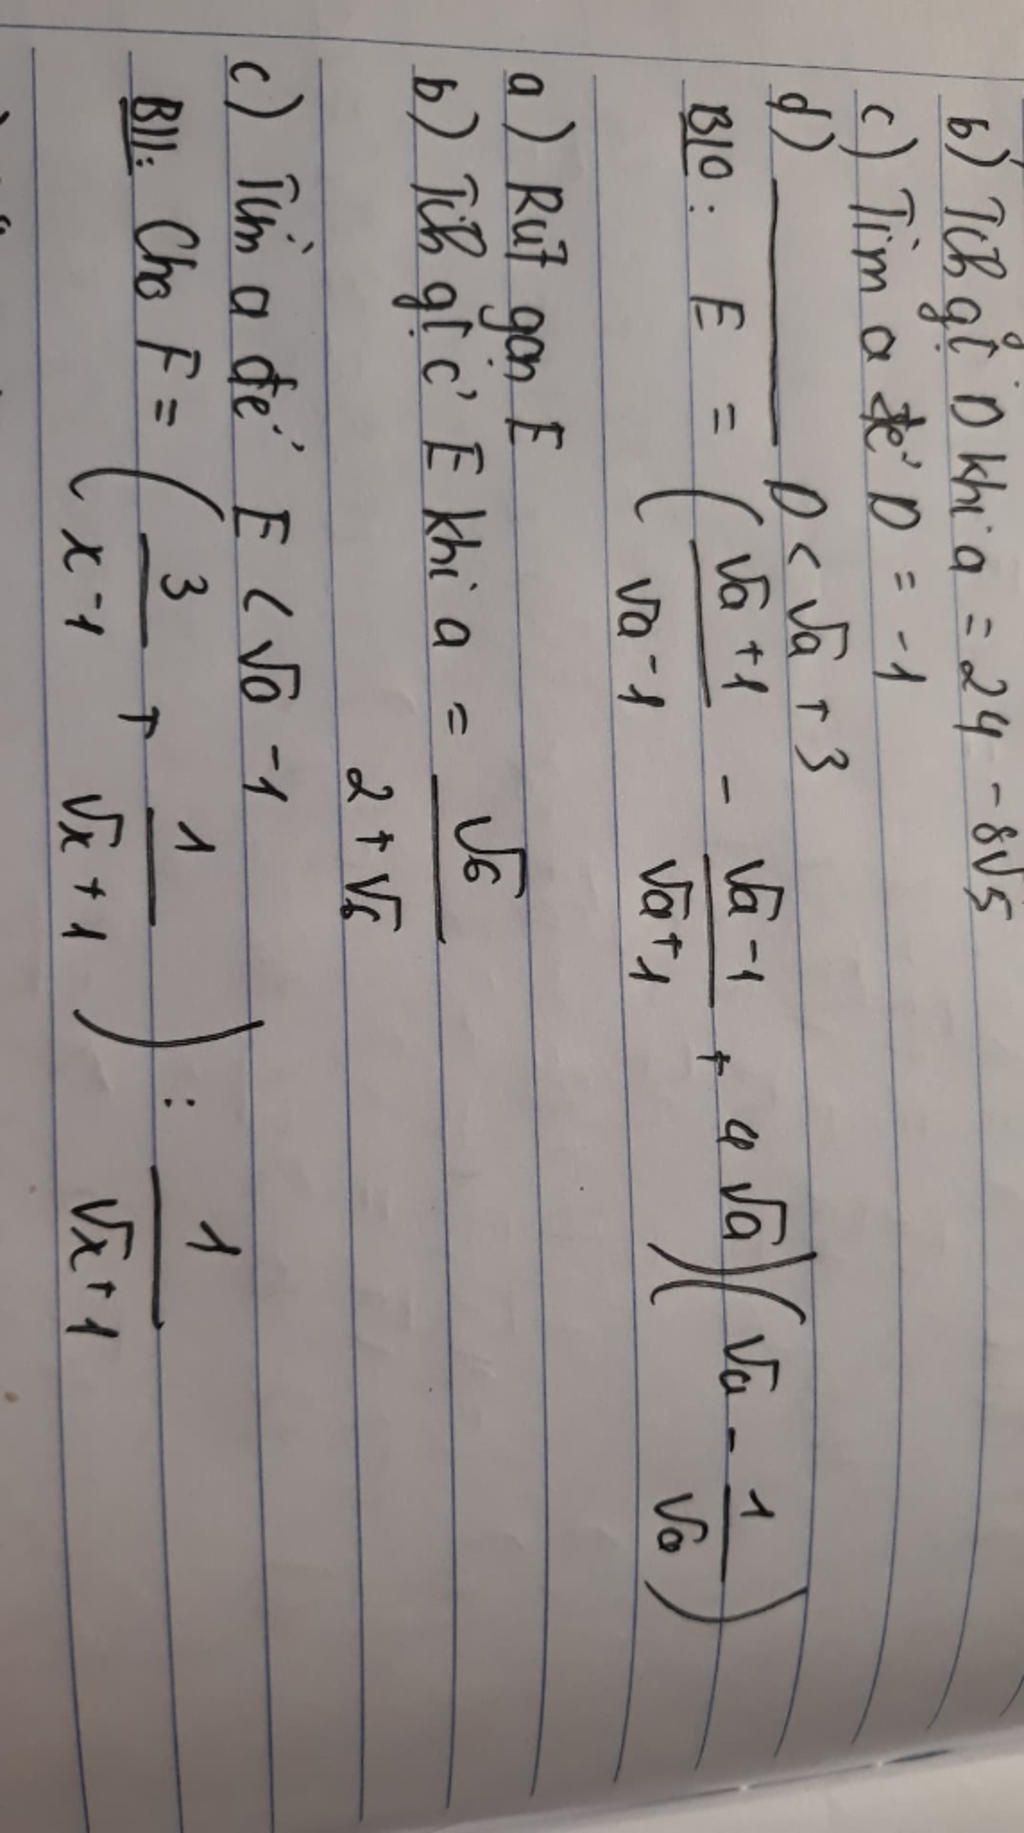 b) Tính gtị D khi a = 24 - 8√5
c) Tìm a để D = -1
d) ——— D < √a + 3
B10: E = ( (√a + 1)/(√a - 1) - (√a - 1)/(√a + 1) + 4√a )( √a - 1/√a )
a) Rút gọn E
b) Tính gtị c' E khi a = √6/(2 + √6)
c) Tìm a để E < √a - 1
B11: Cho F = ( 3/(x - 1) + 1/(√x + 1) ) : 1/(√x + 1)